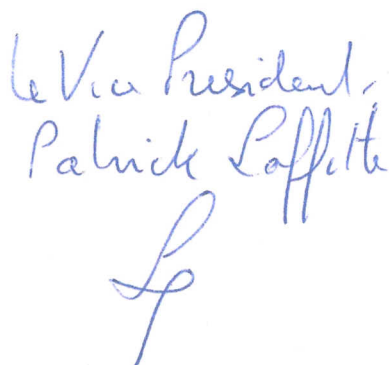 Le Vice President.
Patrick Laffitte